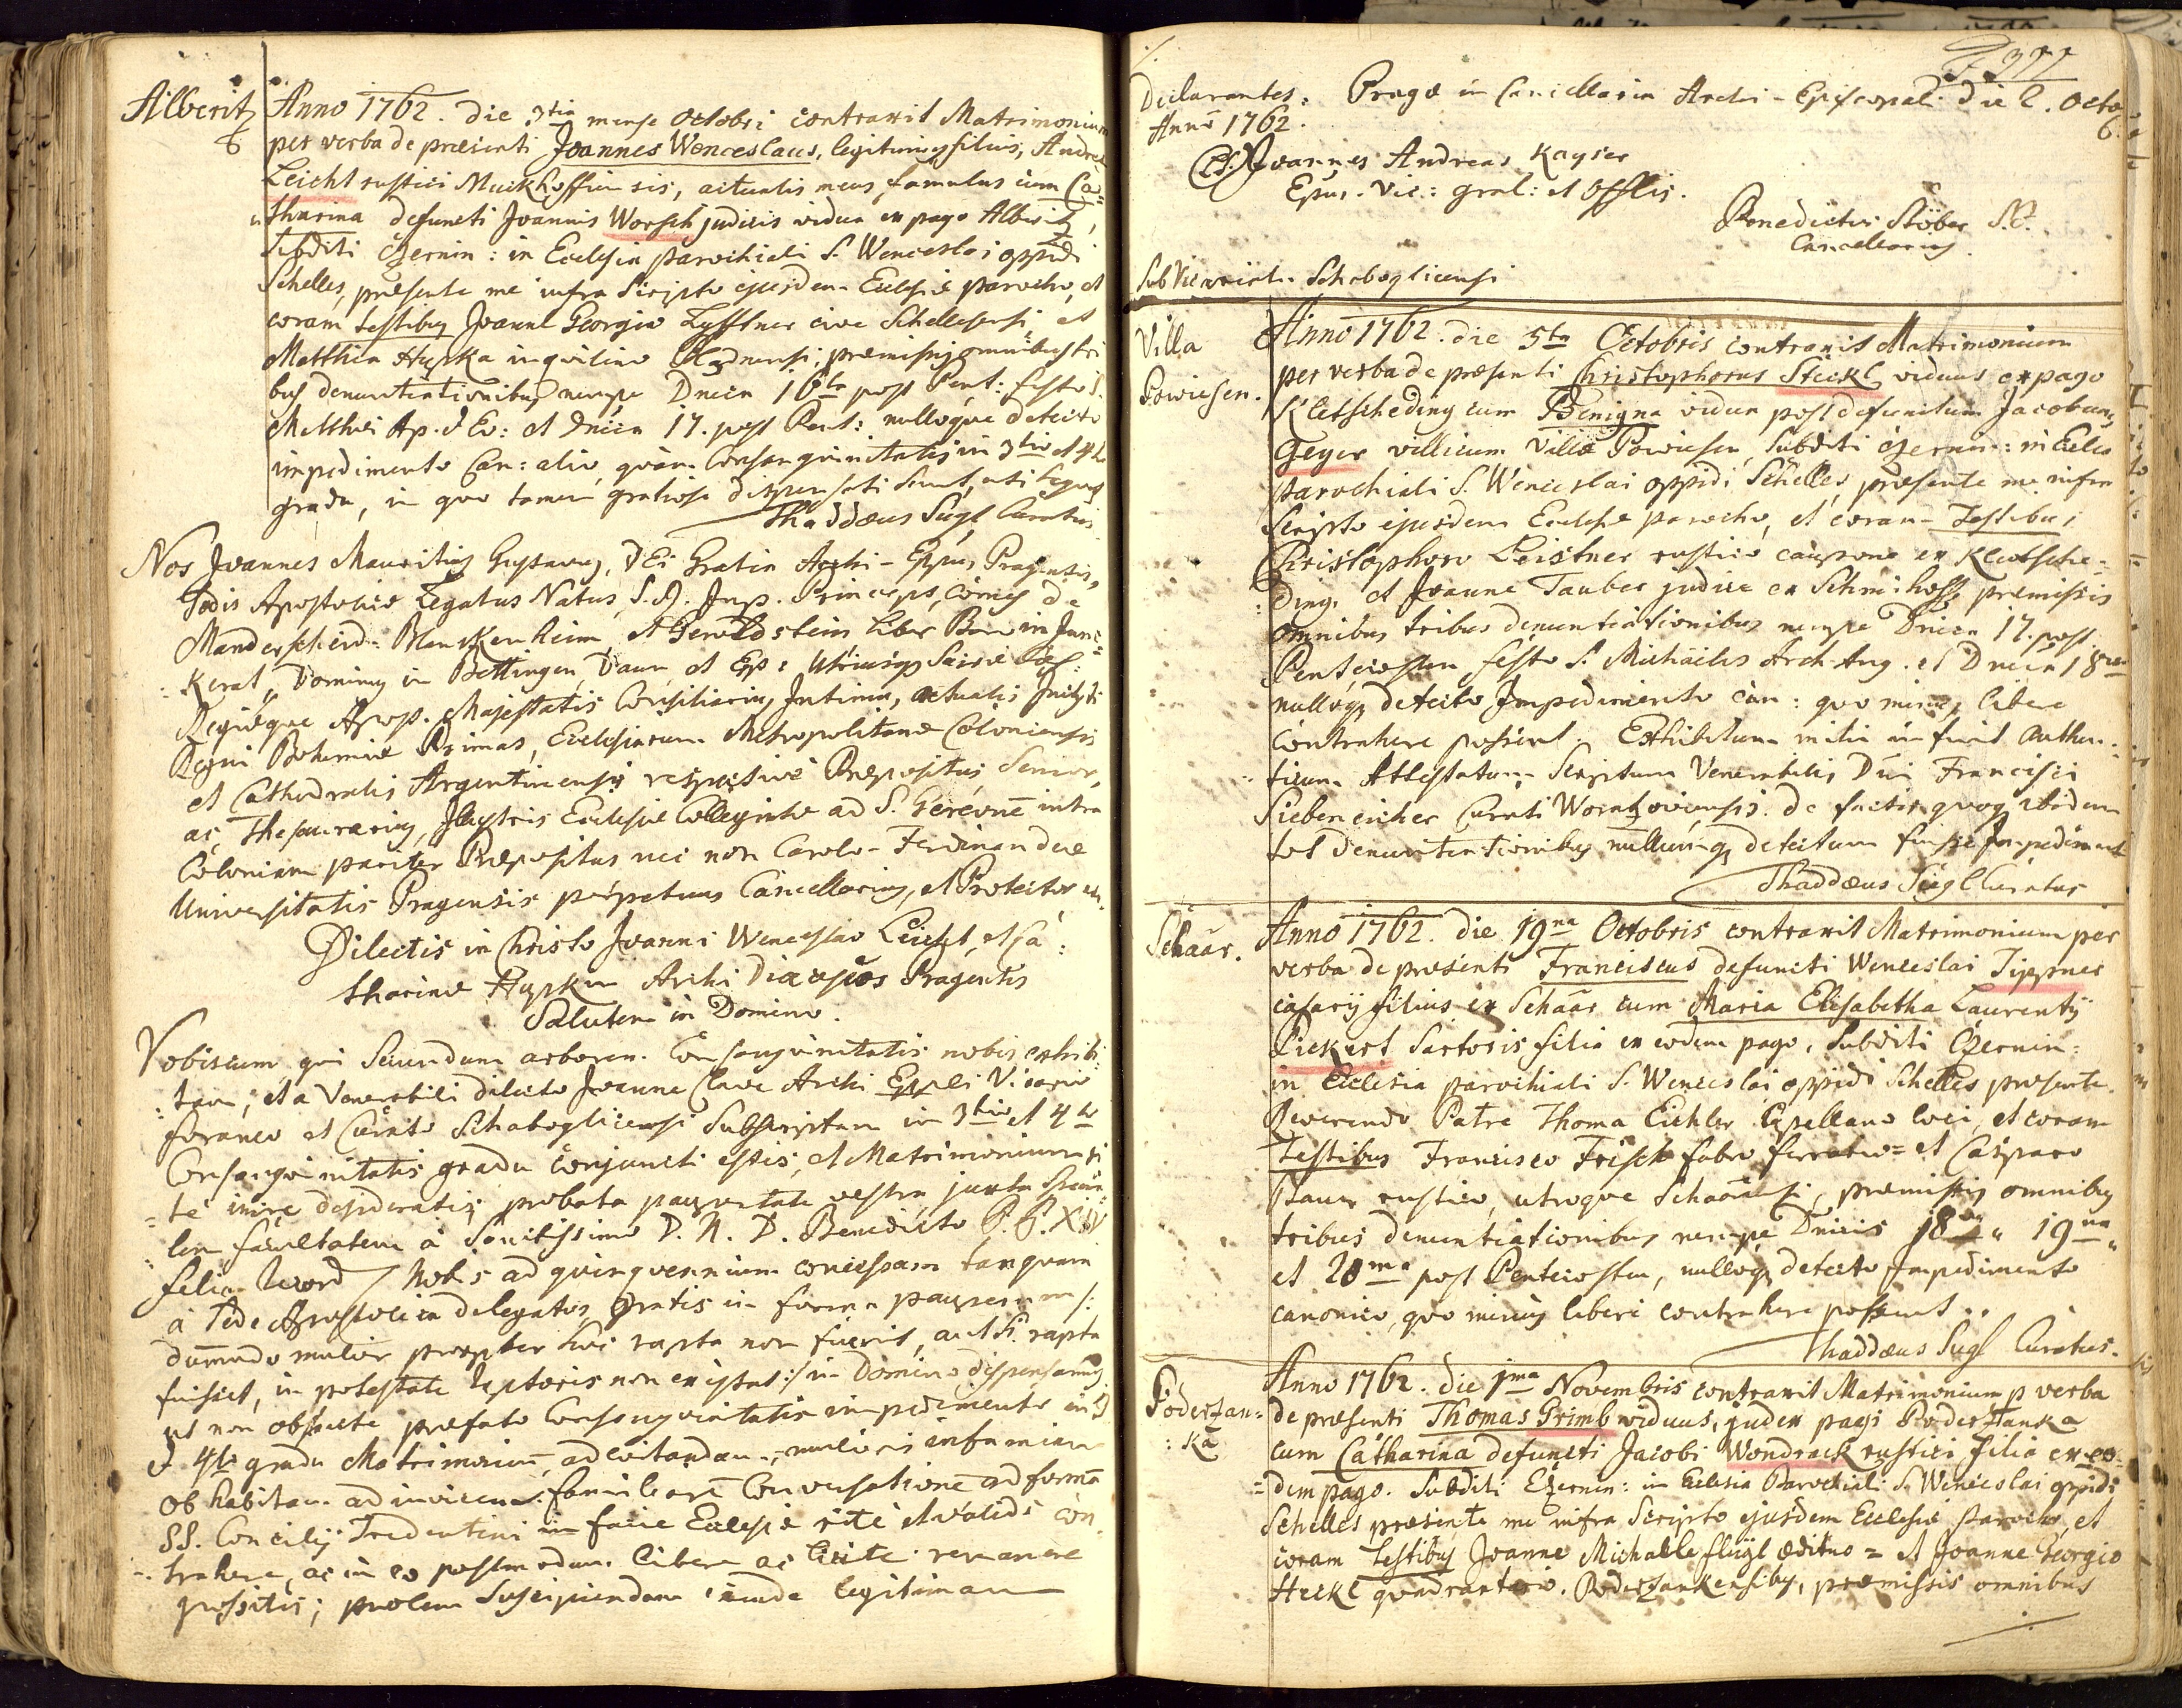 Alberitz
Anno 1762. die 3tia mense Octobri contraxit Matrimonium
per verba de praesenti Joannes Wenceslaus, legitimus filius, Andreae
Leicht rustici Muckhoffiensis, actualis meus famulus cum Ca=
tharina defuncti Joannis Worsch judicis vidua ex pago Alberitz,
Subditi Czernin: in Ecclesia parochiali S. Wenceslai oppidi
Schelles, praesente me infra Scripto ejusdem Ecclesiae parocho, et
coram testibus Joanne Georgio Lyfftner cive Schellesensi, et
Matthia Hyska inquilino praemissis omnibus tri
bus denuntiationibus nempe Dnica 16ta post Pent: festo S.
Matthaei Ap. & Ev: et Dnica 17. post Pent: nulloque detecto
impedimento Can: alio, quam Consanguinitatis in 3tio et 4to
gradu, in quo tamen gratiose dispensati sunt, uti sequitur
Thaddaeus Sügl Curatus
Nos Joannes Mauritius Gustavus, DEi Gratia Archi-Eppus Pragensis,
Sedis Apostolicae Legatus Natus, S. R. Imp. Princeps, Comes de
Manderscheid-Blanckenheim, et Geroldstein liber Baro in Jun=
kerat, Dominus in Bettingen, Daun, et Erp: utriusque Sacrae Caes:
Regiaeque Apost. Majestatis Consiliarius Intimus, actualis Inclyti
Regni Bohemiae Primas, Ecclesiarum Metropolitanae Coloniensis
et Cathedralis Argentinensis respective Praepositus, Senior,
ac Thesaurarius, Illustris Ecclesiae Collegiatae ad S. Gereone intra
Coloniam pariter Praepositus nec non Carolo-Ferdinandeae
Universitatis Pragensis perpetuus Cancellarius, et Protector etc.
Dilectis in Christo Joanni Wenceslao Leicht, et Ca:
tharinae Hyskin Archi Diaecesos Pragensis
Salutem in Domino.
Vobiscum qui Secundum arborem Consanguinitatis nobis exhibi:
tam, et a Venerabili dilecto Joanne Clave Archi Eppli Vicario
foraneo et Curato Schaboglicensi Subscriptam in 3tio et 4to
Consanguinitatis gradu conjuncti estis, et Matrimonium ri
te inire desideratis, probata paupertate vestra juxta specia=
lem facultatem à Sanctissimo D. N. D. Benedicto P. P. XIV
felic: record / Nobis ad quinquennium concessam tanquam
à Sede Apostolica delegatos, gratis in forma pauperum /:
dummodo mulier propter hoc rapta non fuerit, aut si rapta
fuisset, in potestate raptoris non existat :/ in Domino dispensamus,
ut non obstante praefato Consanguinitatis impedimento in 3
& 4to gradu Matrimonium, ad evitandam mulieris infamiam
ob habitam ad invicem familiarem Conversatione ad formam
SS. Concilij Tridentini in facie Ecclesiae rite et valide con
trahere, ac in eo postmodum libere ac licite remanere
possitis; prolem Suscipiendam exinde legitimam
377
Declarantes. Pragae in Cancellaria Archi-Episcopali die 2. Octo
b.
Anno 1762.
(LS.) Joannes Andreas Kayser
Epus. Vic: gral: et Offlis.
Benedictus Stöber S.C.
Cancellarius
Sub Vicariat. Schaboglicensi
Villa
Powiesen.
Anno 1762. die 5ta Octobris contraxit Matrimonium
per verba de praesenti Christophorus Steckl, viduus ex pago
Kletscheding cum Benigna vidua post defunctum Jacobum
Geyer villicum Villae Powiesen, Subditi Czernin: in Eccle
parochiali S. Wenceslai oppidi Schelles, praesente me infra
Scripto ejusdem Ecclesiae parocho, et coram Testibus
Christophoro Leistner rustico caupone ex Kletsche=
ding. et Joanne Tauber judice ex Schmihoff, premissis
omnibus tribus denuntiationibus nempe Dnica 17. post
Pentecosten festo S. Michaëlis Arch-Ang. et Dnica 18va
nulloque detecto Impedimento can: quo minus libere
contrahere possent. Exhibitum mihi fuit authen
ticum Attestatum Scriptum Venerabilis Dni Francisci
Siebeneicher Curati Woratzoviensis. de factis quoque ibidem
tot denuntiationibus nullumque detectum fuisse Impediment
Thaddaeus Sügl Curatus
Schaar.
Anno 1762. die 19na Octobris contraxit Matrimonium per
verba de praesenti Franciscus defuncti Wenceslai Tippner
casarij filius ex Schaar cum Maria Elisabetha Laurentij
Pickert Sartoris filia ex eodem pago, Subditi Czernin:
in Ecclesia parochiali S. Wenceslai oppidi Schelles praesente
Reverendo Patre Thoma Eichler Capellano loci, et coram
Testibus Francisco Frisch fabro ferrario = et Casparo
Bauer rustico, utroque Schaarensi, praemissis omnibus
tribus denuntiationibus nempe Dnicis 18va 19na
et 20ma post Pentecosten, nulloque detecto Impedimento
canonico, quo minus libere contrahere possent..
Thaddaeus Sügl Curatus.
Podersan=
:ka
Anno 1762. die 1ma Novembris contraxit Matrimonium p verba
de praesenti Thomas Grimb viduus, judex pagi Podersanka
cum Catharina defuncti Jacobi Wondrack rustici filia ex eo=
=dem pago. Subditi Czernin: in Eclesia Parochiali S. Wenceslai oppidi
Schelles praesente me infra Scripto ejusdem Ecclesiae parocho, et
coram Testibus Joanne Michaële flügl aedituo = et Joanne Georgio
Heckl quadrantario. Podersankensibus, praemissis omnibus